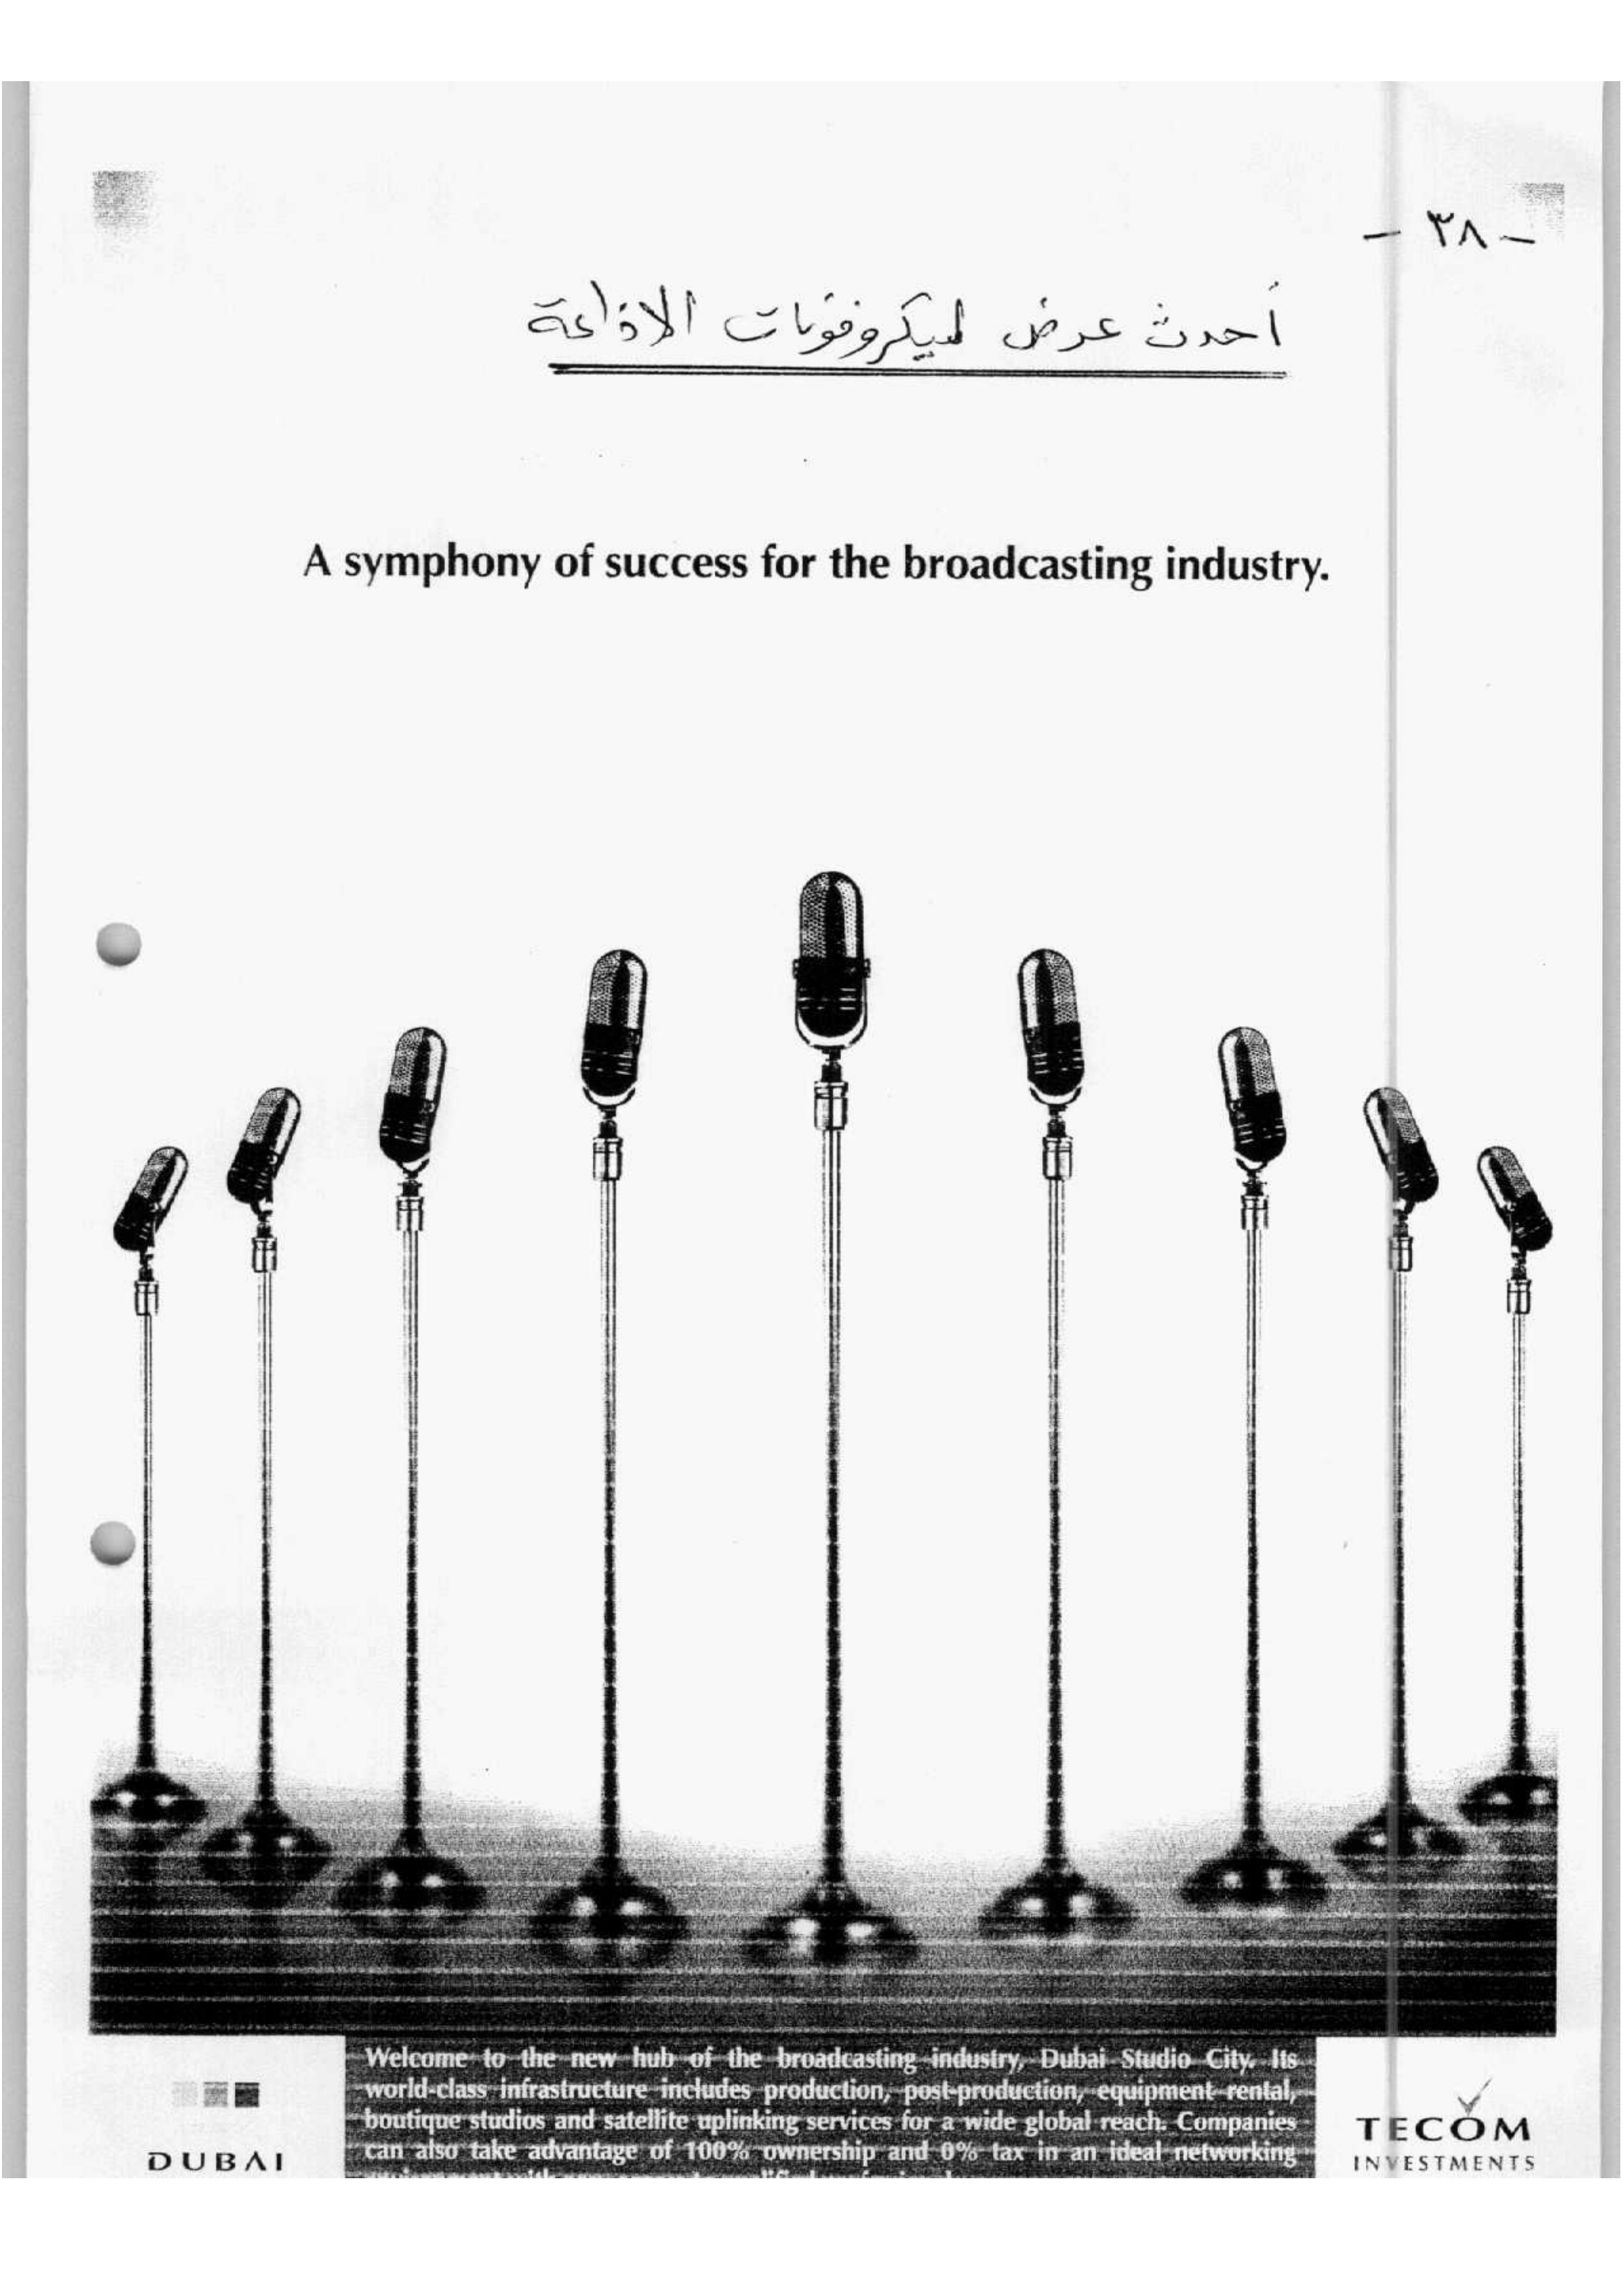 - ٣٨ -
أحدث عرض لميكروفونات الاذاعة
A symphony of success for the broadcasting industry.
Welcome to the new hub of the broadcasting industry, Dubai Studio City. Its
world-class infrastructure includes production, post-production, equipment rental,
boutique studios and satellite uplinking services for a wide global reach. Companies
can also take advantage of 100% ownership and 0% tax in an ideal networking
DUBAI
TECOM
INVESTMENTS